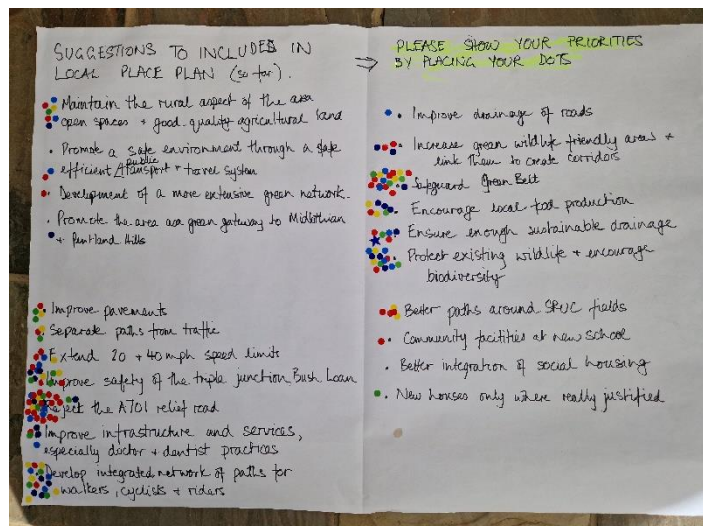 SUGGESTIONS TO INCLUDED IN
LOCAL PLACE PLAN (so far).
⇒ PLEASE SHOW YOUR PRIORITIES
BY PLACING YOUR DOTS
Maintain the rural aspect of the area
open spaces + good quality agricultural land
• Promote a safe environment through a safe
efficient public transport + travel system
• Development of a more extensive green network.
• Promote the area as a green gateway to Midlothian
+ Pentland Hills
• Improve pavements
• Separate paths from traffic
Extend 20 + 40 mph speed limits
Improve safety of the triple junction Bush Loan
Reject the A701 relief road
Improve infrastructure and services,
especially doctor + dentist practices
Develop integrated network of paths for
walkers, cyclists + riders
• Improve drainage of roads
• Increase green wildlife friendly areas +
link them to create corridors
Safeguard Green Belt
• Encourage local food production
• Ensure enough sustainable drainage
Protect existing wildlife + encourage
biodiversity
• Better paths around SRUC fields
• Community facilities at new school
• Better integration of social housing
• New houses only where really justified